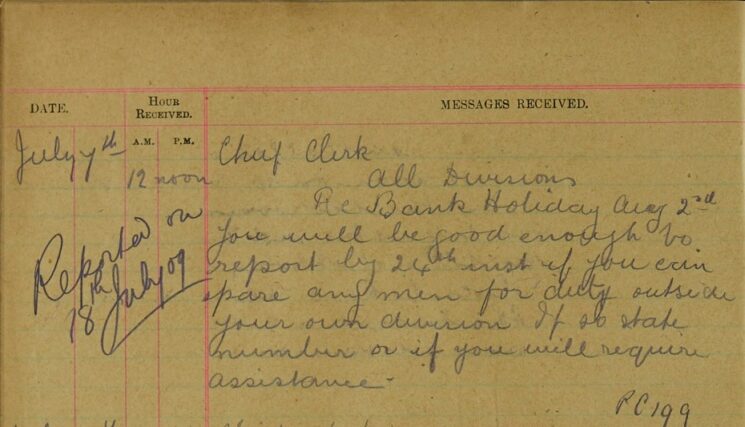 DATE.
HOUR RECEIVED.
MESSAGES RECEIVED.
A.M.
P.M.
July 7th
12 noon
Chief Clerk
All Divisions
Re Bank Holiday Aug 2nd
You will be good enough to
report by 24th inst if you can
spare any men for duty outside
your own division If so state
number or if you will require
assistance -
PC 199
Reported on
18th July 09